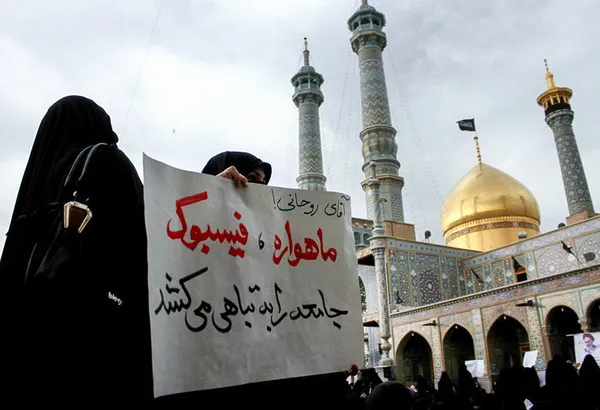 آقای روحانی!
ماهواره، فیسبوک
جامعه را به تباهی می‌کشد